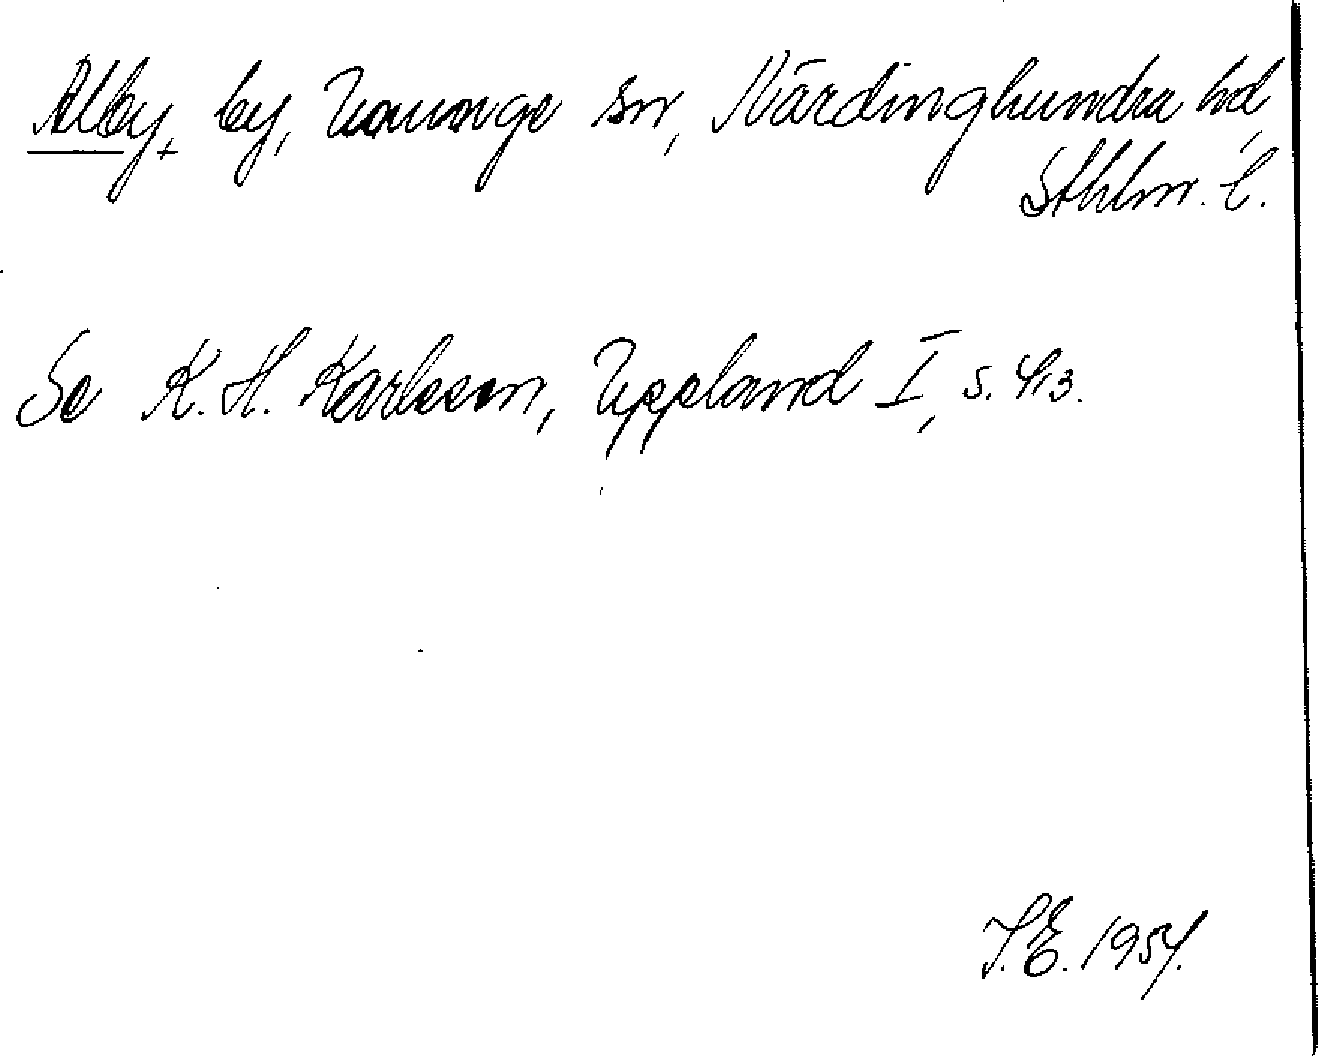 Alby, by, Ununge sn, Närdinghundra hd,
Sthlm. l.
Se K. H. Karlsson, Uppland I, s. 413.
J.E. 1954.